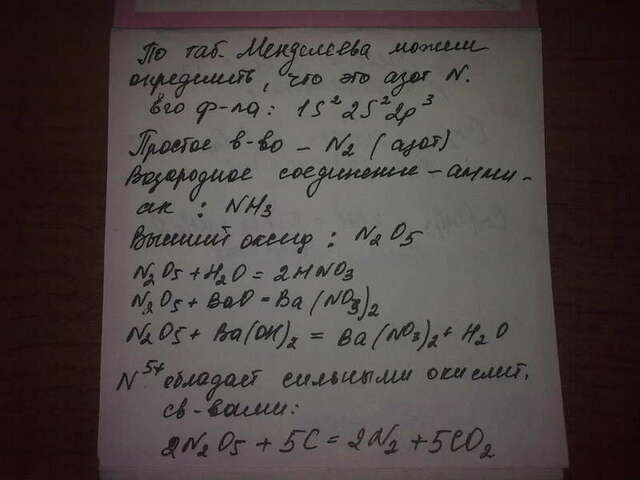 По таб. Менделеева можем
определить, что это азот N.
Его ф-ла: 1S² 2S² 2p³
Простое в-во – N₂ (азот)
Водородное соединение – амми-
ак : NH₃
Высший оксид : N₂O₅
N₂O₅ + H₂O = 2HNO₃
N₂O₅ + BaO = Ba(NO₃)₂
N₂O₅ + Ba(OH)₂ = Ba(NO₃)₂ + H₂O
N⁵⁺ обладает сильными окислит.
св-вами:
2N₂O₅ + 5C = 2N₂ + 5CO₂